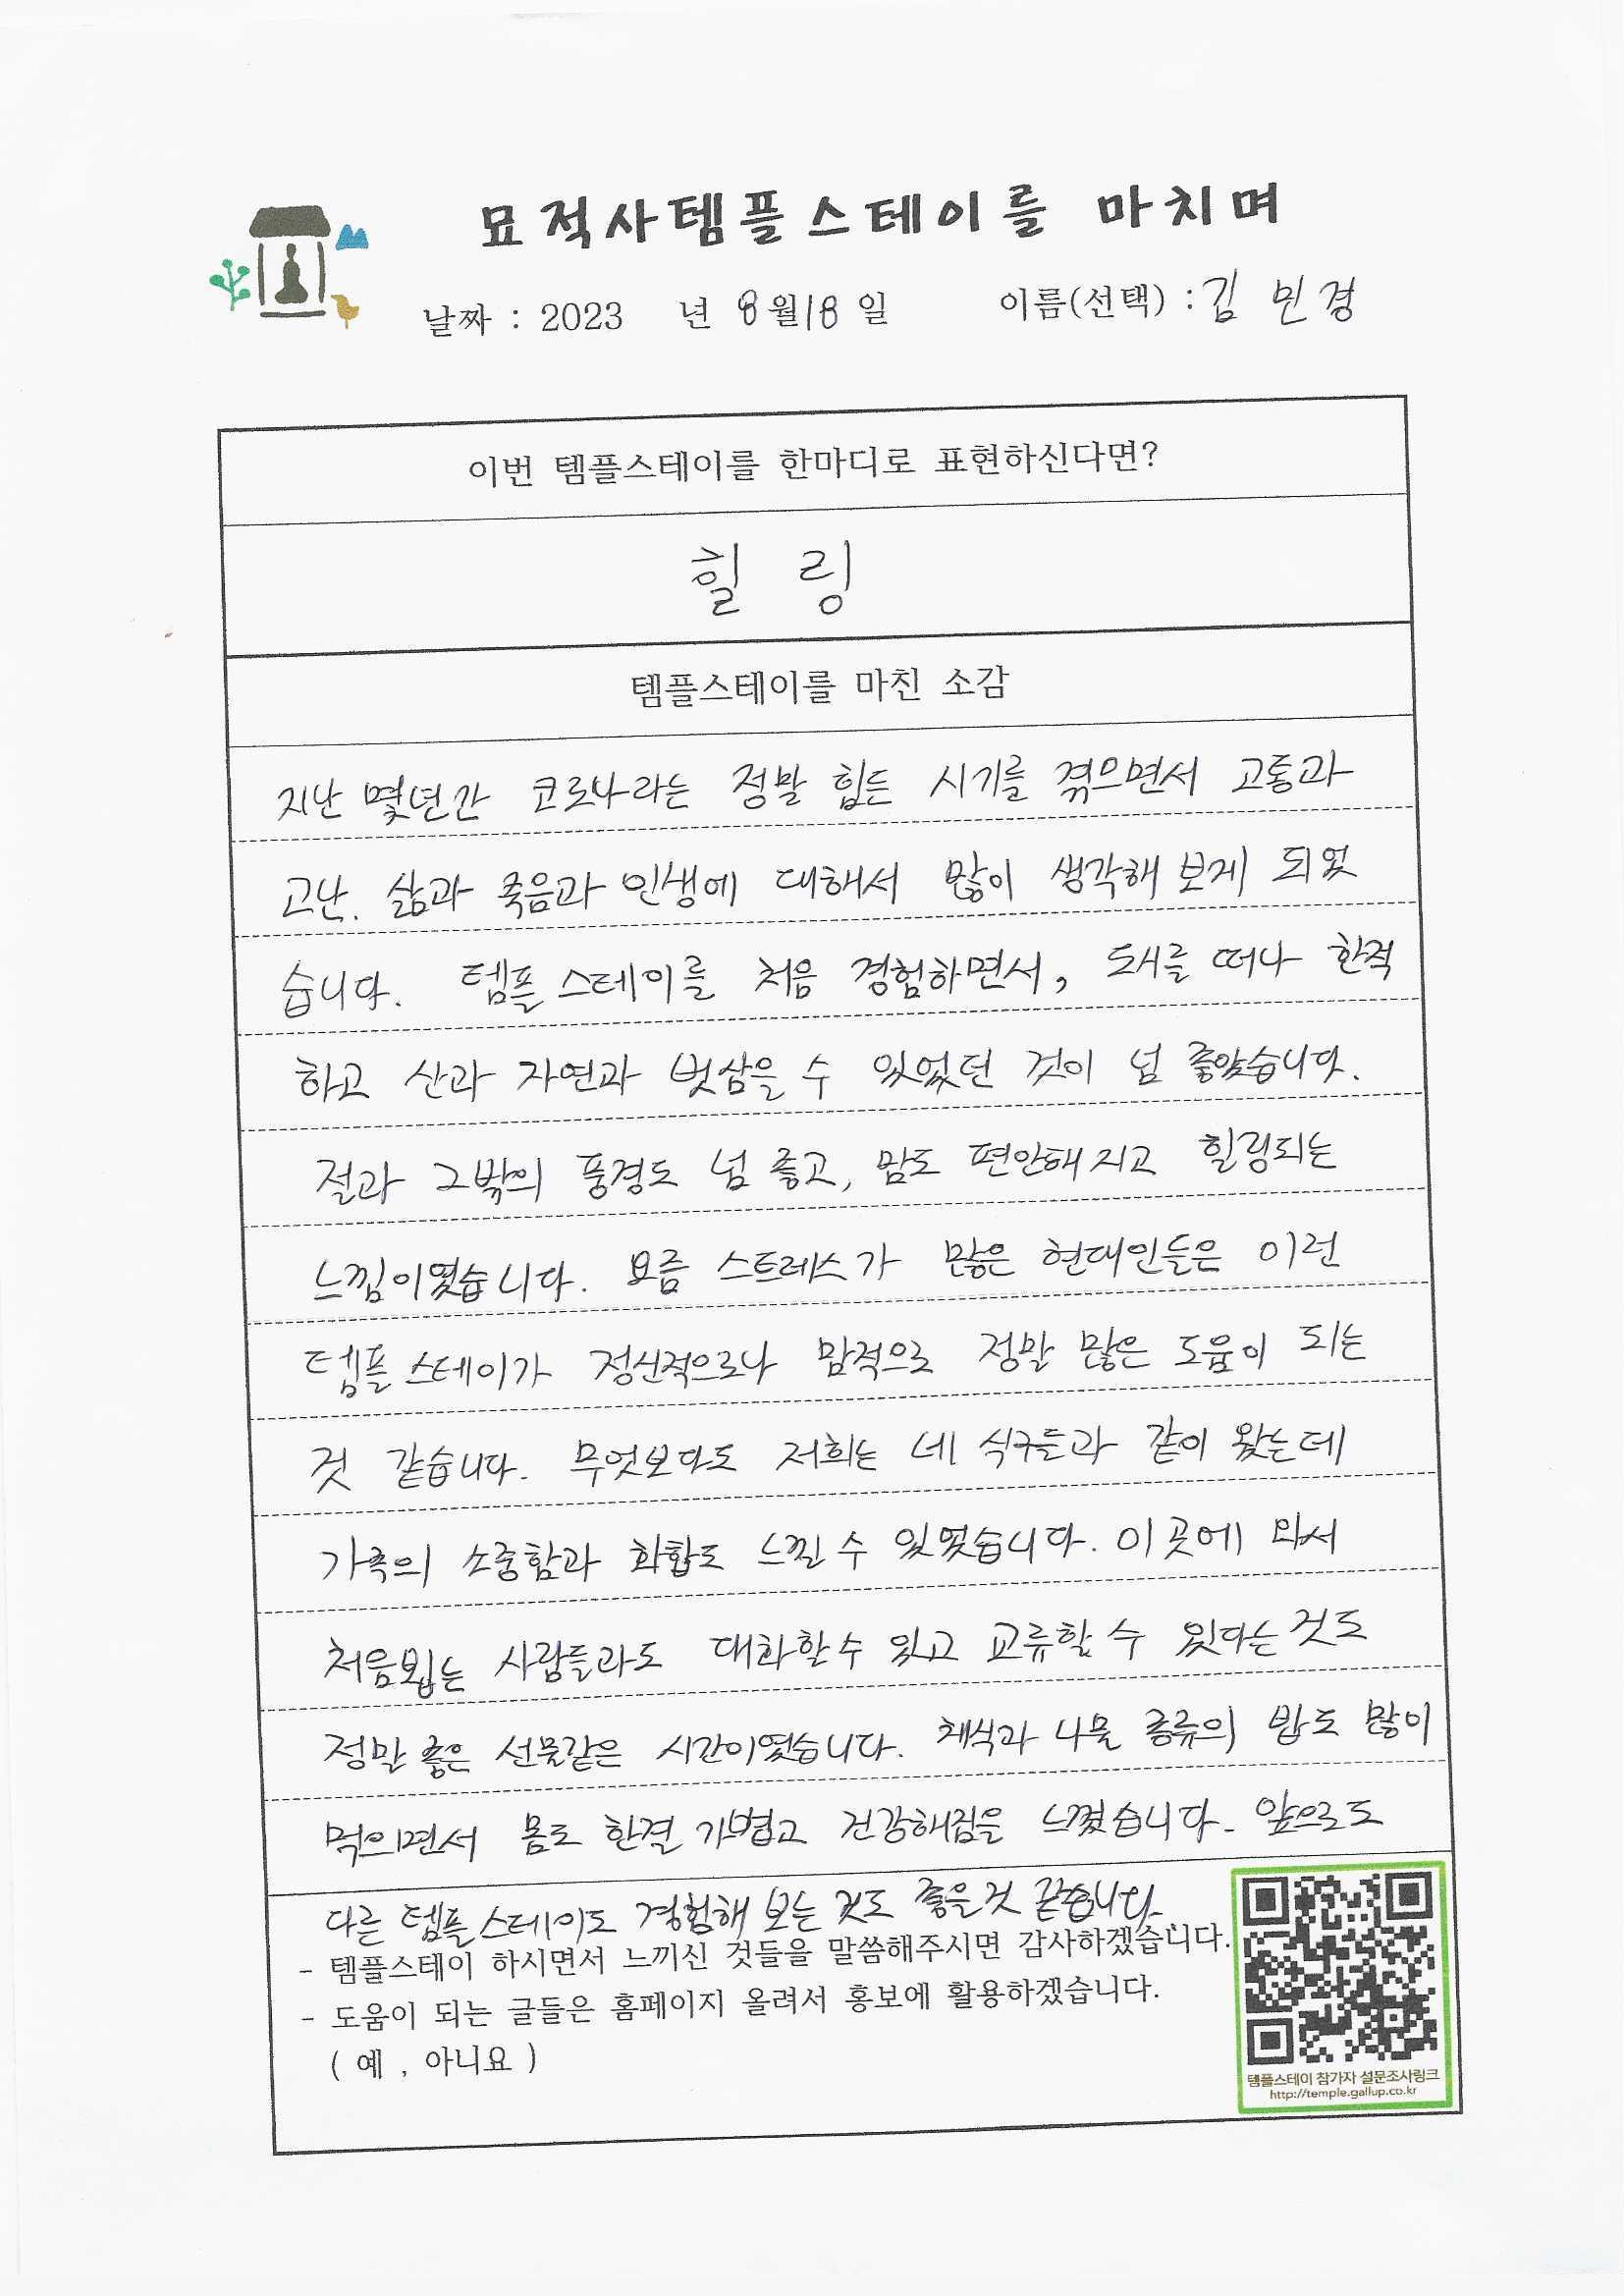 묘적사템플스테이를 마치며
날짜 : 2023 년 8월18 일 이름(선택) : 김 민 경
이번 템플스테이를 한마디로 표현하신다면?
힐 링
템플스테이를 마친 소감
지난 몇년간 코로나라는 정말 힘든 시기를 겪으면서 고통과
고난. 삶과 죽음과 인생에 대해서 많이 생각해 보게 되었
습니다. 템플스테이를 처음 경험하면서, 도시를 떠나 한적
하고 산과 자연과 벗삼을 수 있었던 것이 넘 좋았습니다.
절과 그밖의 풍경도 넘 좋고, 맘도 편안해 지고 힐링되는
느낌이였습니다. 요즘 스트레스가 많은 현대인들은 이런
템플스테이가 정신적으로나 맘적으로 정말 많은 도움이 되는
것 같습니다. 무엇보다도 저희는 네 식구들과 같이 왔는데
가족의 소중함과 화합도 느낄 수 있였습니다. 이 곳에 와서
처음뵙는 사람들과도 대화할 수 있고 교류할 수 있다는 것도
정말 좋은 선물같은 시간이였습니다. 채식과 나물 종류의 밥도 많이
먹으면서 몸도 한결 가볍고 건강해짐을 느꼈습니다. 앞으로도
다른 템플스테이도 경험해 보는 것도 좋을것 같습니다.
- 템플스테이 하시면서 느끼신 것들을 말씀해주시면 감사하겠습니다.
- 도움이 되는 글들은 홈페이지 올려서 홍보에 활용하겠습니다.
( 예 , 아니요 )
템플스테이 참가자 설문조사링크
http://temple.gallup.co.kr